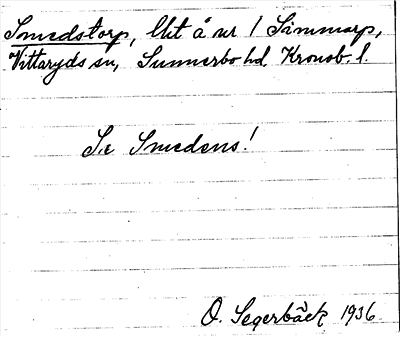 Smedstorp, lht å nr 1 Sämmarp,
Vittaryds sn, Sunnerbo hd. Kronob. l.
Se Smedens!
O. Segerbäck 1936